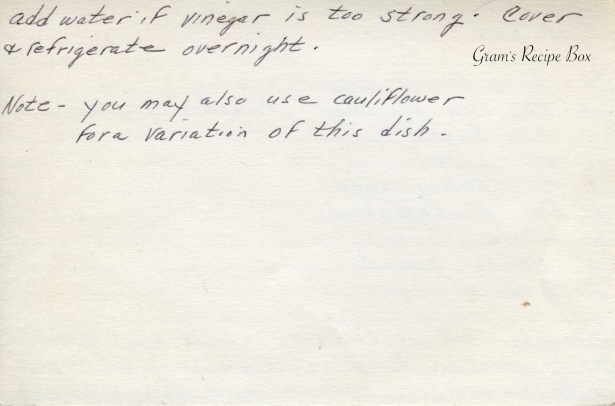 add water if vinegar is too strong. Cover
& refrigerate overnight.
Gram's Recipe Box
Note - you may also use cauliflower
for a variation of this dish.